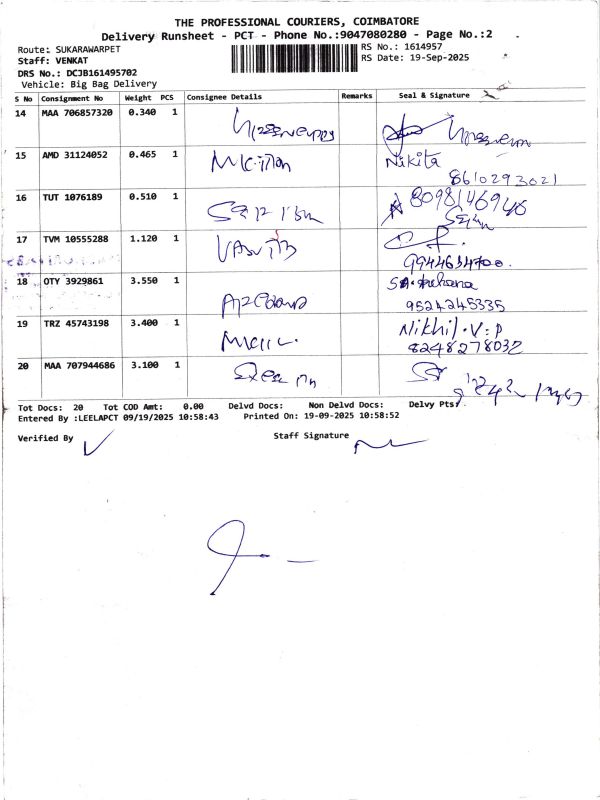 THE PROFESSIONAL COURIERS, COIMBATORE
Delivery Runsheet - PCT - Phone No.:9047080280 - Page No.:2
Route: SUKARAWARPET
RS No.: 1614957
Staff: VENKAT
RS Date: 19-Sep-2025
DRS No.: DCJB161495702
Vehicle: Big Bag Delivery
S No Consignment No Weight PCS Consignee Details Remarks Seal & Signature
14 MAA 706857320 0.340 1
15 AMD 31124052 0.465 1 Nikita
8610293021
16 TUT 1076189 0.510 1 8098146946
17 TVM 10555288 1.120 1
9944634700.
18 OTY 3929861 3.550 1
9524245335
19 TRZ 45743198 3.400 1 Nikhil.V.P
8248278032
20 MAA 707944686 3.100 1
Tot Docs: 20 Tot COD Amt: 0.00 Delvd Docs: Non Delvd Docs: Delvy Pts:
Entered By :LEELAPCT 09/19/2025 10:58:43 Printed On: 19-09-2025 10:58:52
Verified By Staff Signature